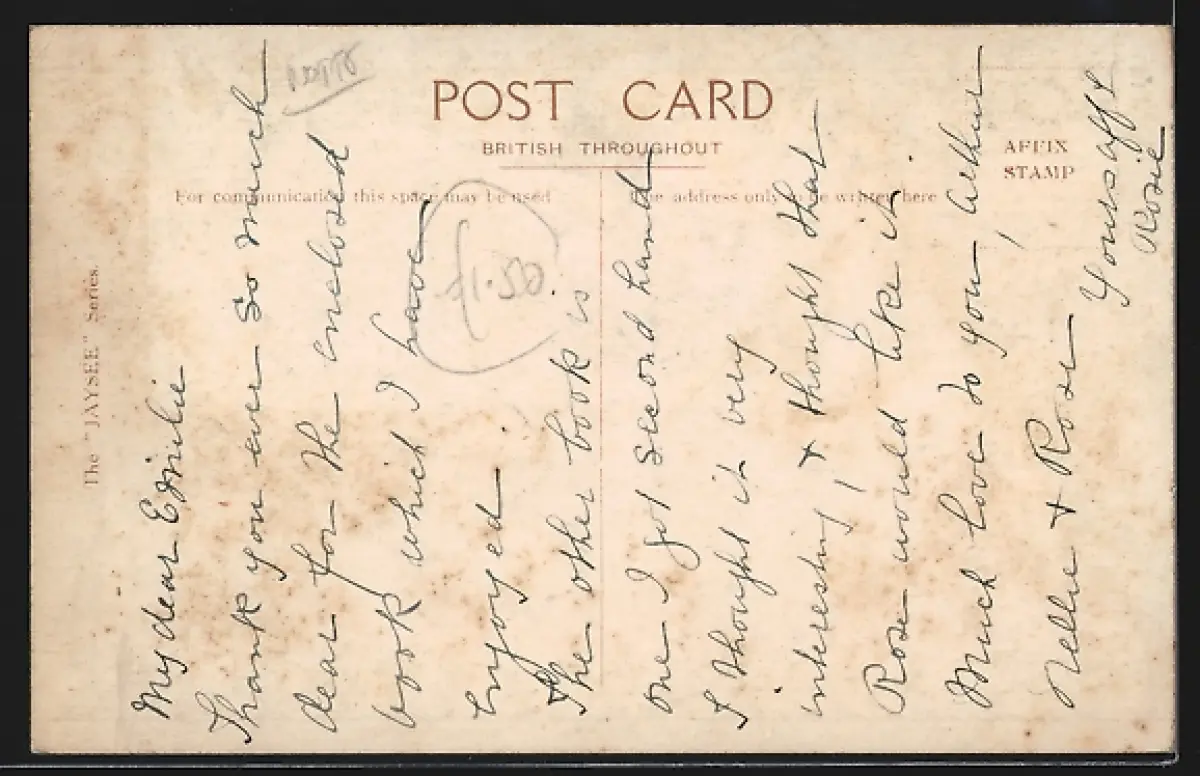 POST CARD
BRITISH THROUGHOUT
For communication this space may be used
The address only to be written here
AFFIX
STAMP
The "JAYSEE" Series.
£1.50
My dear Emilie
Thank you ever so much
dear for the enclosed
book which I have
enjoyed
The other book is
one I got second hand
I thought it very
interesting & thought that
Rose would like it.
Much love to you, Arthur
Nellie & Rose
Yours afft
Rosie